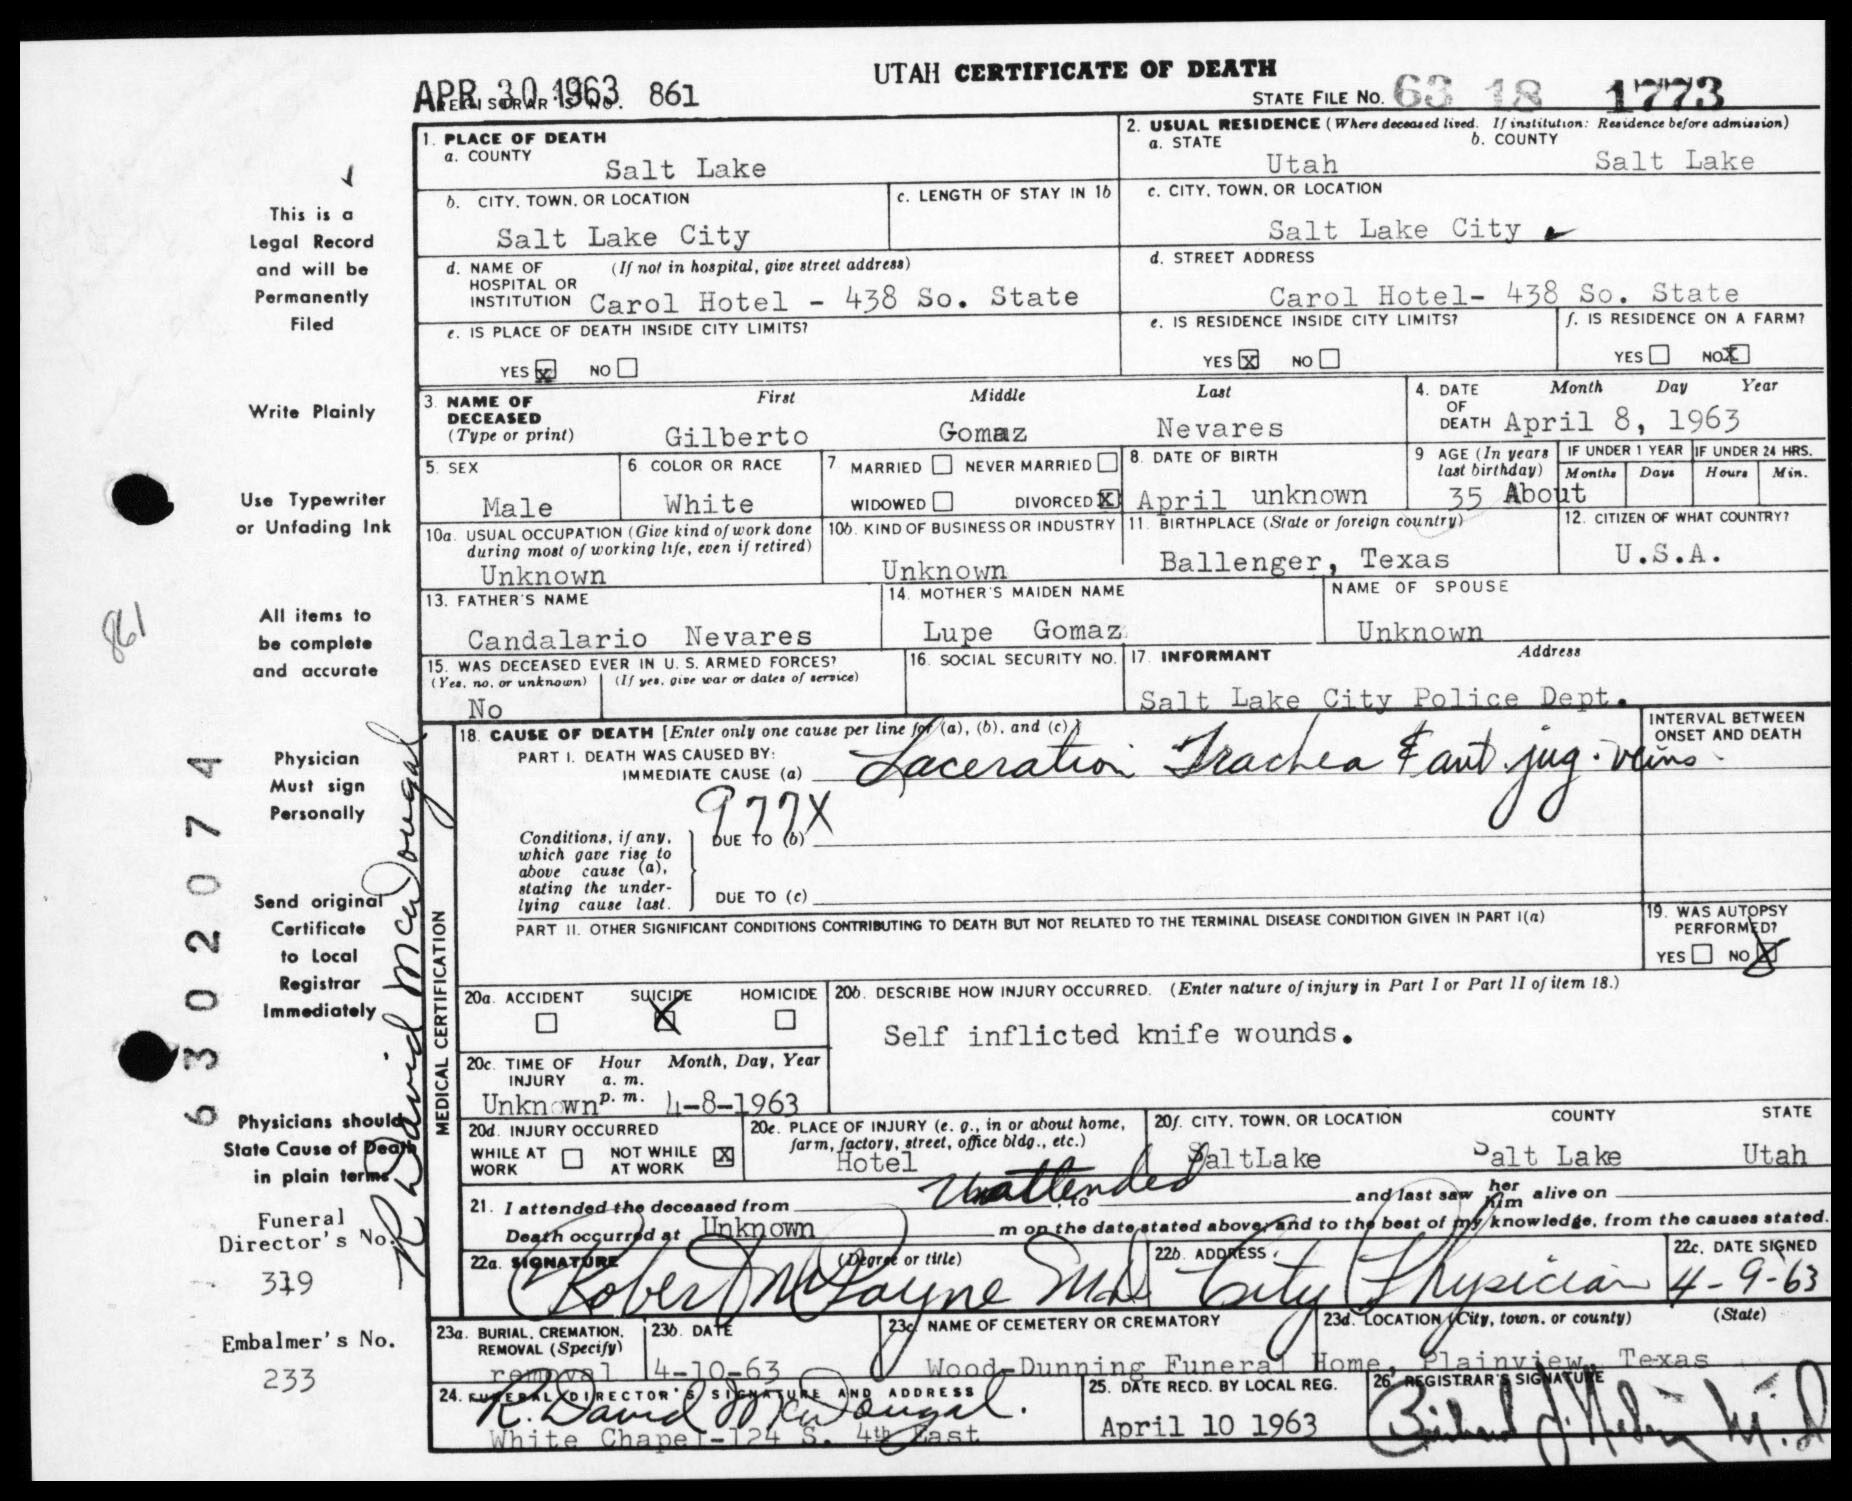 UTAH CERTIFICATE OF DEATH
APR 30 1963
REGISTRAR'S NO. 861
STATE FILE NO. 63 18 1773
1. PLACE OF DEATH
a. COUNTY
Salt Lake
2. USUAL RESIDENCE (Where deceased lived. If institution: Residence before admission)
a. STATE b. COUNTY
Utah Salt Lake
b. CITY, TOWN, OR LOCATION
Salt Lake City
c. LENGTH OF STAY IN 1b
c. CITY, TOWN, OR LOCATION
Salt Lake City
d. NAME OF HOSPITAL OR INSTITUTION (If not in hospital, give street address)
Carol Hotel - 438 So. State
d. STREET ADDRESS
Carol Hotel- 438 So. State
e. IS PLACE OF DEATH INSIDE CITY LIMITS?
YES X NO
e. IS RESIDENCE INSIDE CITY LIMITS?
YES X NO
f. IS RESIDENCE ON A FARM?
YES NO X
3. NAME OF DECEASED (Type or print)
First Middle Last
Gilberto Gomaz Nevares
4. DATE OF DEATH Month Day Year
April 8, 1963
5. SEX
Male
6. COLOR OR RACE
White
7. MARRIED NEVER MARRIED
WIDOWED DIVORCED X
8. DATE OF BIRTH
April unknown
9 AGE (In years last birthday)
35 About
IF UNDER 1 YEAR
Months Days
IF UNDER 24 HRS.
Hours Min.
10a. USUAL OCCUPATION (Give kind of work done during most of working life, even if retired)
Unknown
10b. KIND OF BUSINESS OR INDUSTRY
Unknown
11. BIRTHPLACE (State or foreign country)
Ballenger, Texas
12. CITIZEN OF WHAT COUNTRY?
U.S.A.
13. FATHER'S NAME
Candalario Nevares
14. MOTHER'S MAIDEN NAME
Lupe Gomaz
NAME OF SPOUSE
Unknown
15. WAS DECEASED EVER IN U. S. ARMED FORCES?
(Yes, no, or unknown) (If yes, give war or dates of service)
No
16. SOCIAL SECURITY NO.
17. INFORMANT Address
Salt Lake City Police Dept.
MEDICAL CERTIFICATION
18. CAUSE OF DEATH [Enter only one cause per line for (a), (b), and (c)]
PART I. DEATH WAS CAUSED BY:
IMMEDIATE CAUSE (a) Laceration Trachea & ant. jug. veins
INTERVAL BETWEEN ONSET AND DEATH
977X
Conditions, if any, which gave rise to above cause (a), stating the underlying cause last.
DUE TO (b)
DUE TO (c)
PART II. OTHER SIGNIFICANT CONDITIONS CONTRIBUTING TO DEATH BUT NOT RELATED TO THE TERMINAL DISEASE CONDITION GIVEN IN PART I(a)
19. WAS AUTOPSY PERFORMED?
YES NO X
20a. ACCIDENT SUICIDE HOMICIDE
X
20b. DESCRIBE HOW INJURY OCCURRED. (Enter nature of injury in Part I or Part II of item 18.)
Self inflicted knife wounds.
20c. TIME OF INJURY Hour a. m. p. m. Month, Day, Year
Unknown 4-8-1963
20d. INJURY OCCURRED
WHILE AT WORK NOT WHILE AT WORK X
20e. PLACE OF INJURY (e. g., in or about home, farm, factory, street, office bldg., etc.)
Hotel
20f. CITY, TOWN, OR LOCATION COUNTY STATE
SaltLake Salt Lake Utah
21. I attended the deceased from Unattended, to and last saw her him alive on
Death occurred at Unknown m on the date stated above, and to the best of my knowledge, from the causes stated.
22a. SIGNATURE (Degree or title)
Robert McPayne M.D.
22b. ADDRESS
City Physician
22c. DATE SIGNED
4-9-63
23a. BURIAL, CREMATION, REMOVAL (Specify)
removal
23b. DATE
4-10-63
23c. NAME OF CEMETERY OR CREMATORY
23d. LOCATION (City, town, or county) (State)
Wood-Dunning Funeral Home, Plainview, Texas
24. FUNERAL DIRECTOR'S SIGNATURE AND ADDRESS
R. David McDougal.
White Chapel-124 S. 4th East
25. DATE RECD. BY LOCAL REG.
April 10 1963
26. REGISTRAR'S SIGNATURE
This is a
Legal Record
and will be
Permanently
Filed
Write Plainly
Use Typewriter
or Unfading Ink
All items to
be complete
and accurate
861
Physician
Must sign
Personally
Send original
Certificate
to Local
Registrar
Immediately
Physicians should
State Cause of Death
in plain terms
Funeral
Director's No.
319
Embalmer's No.
233
6302074
R David McDougal